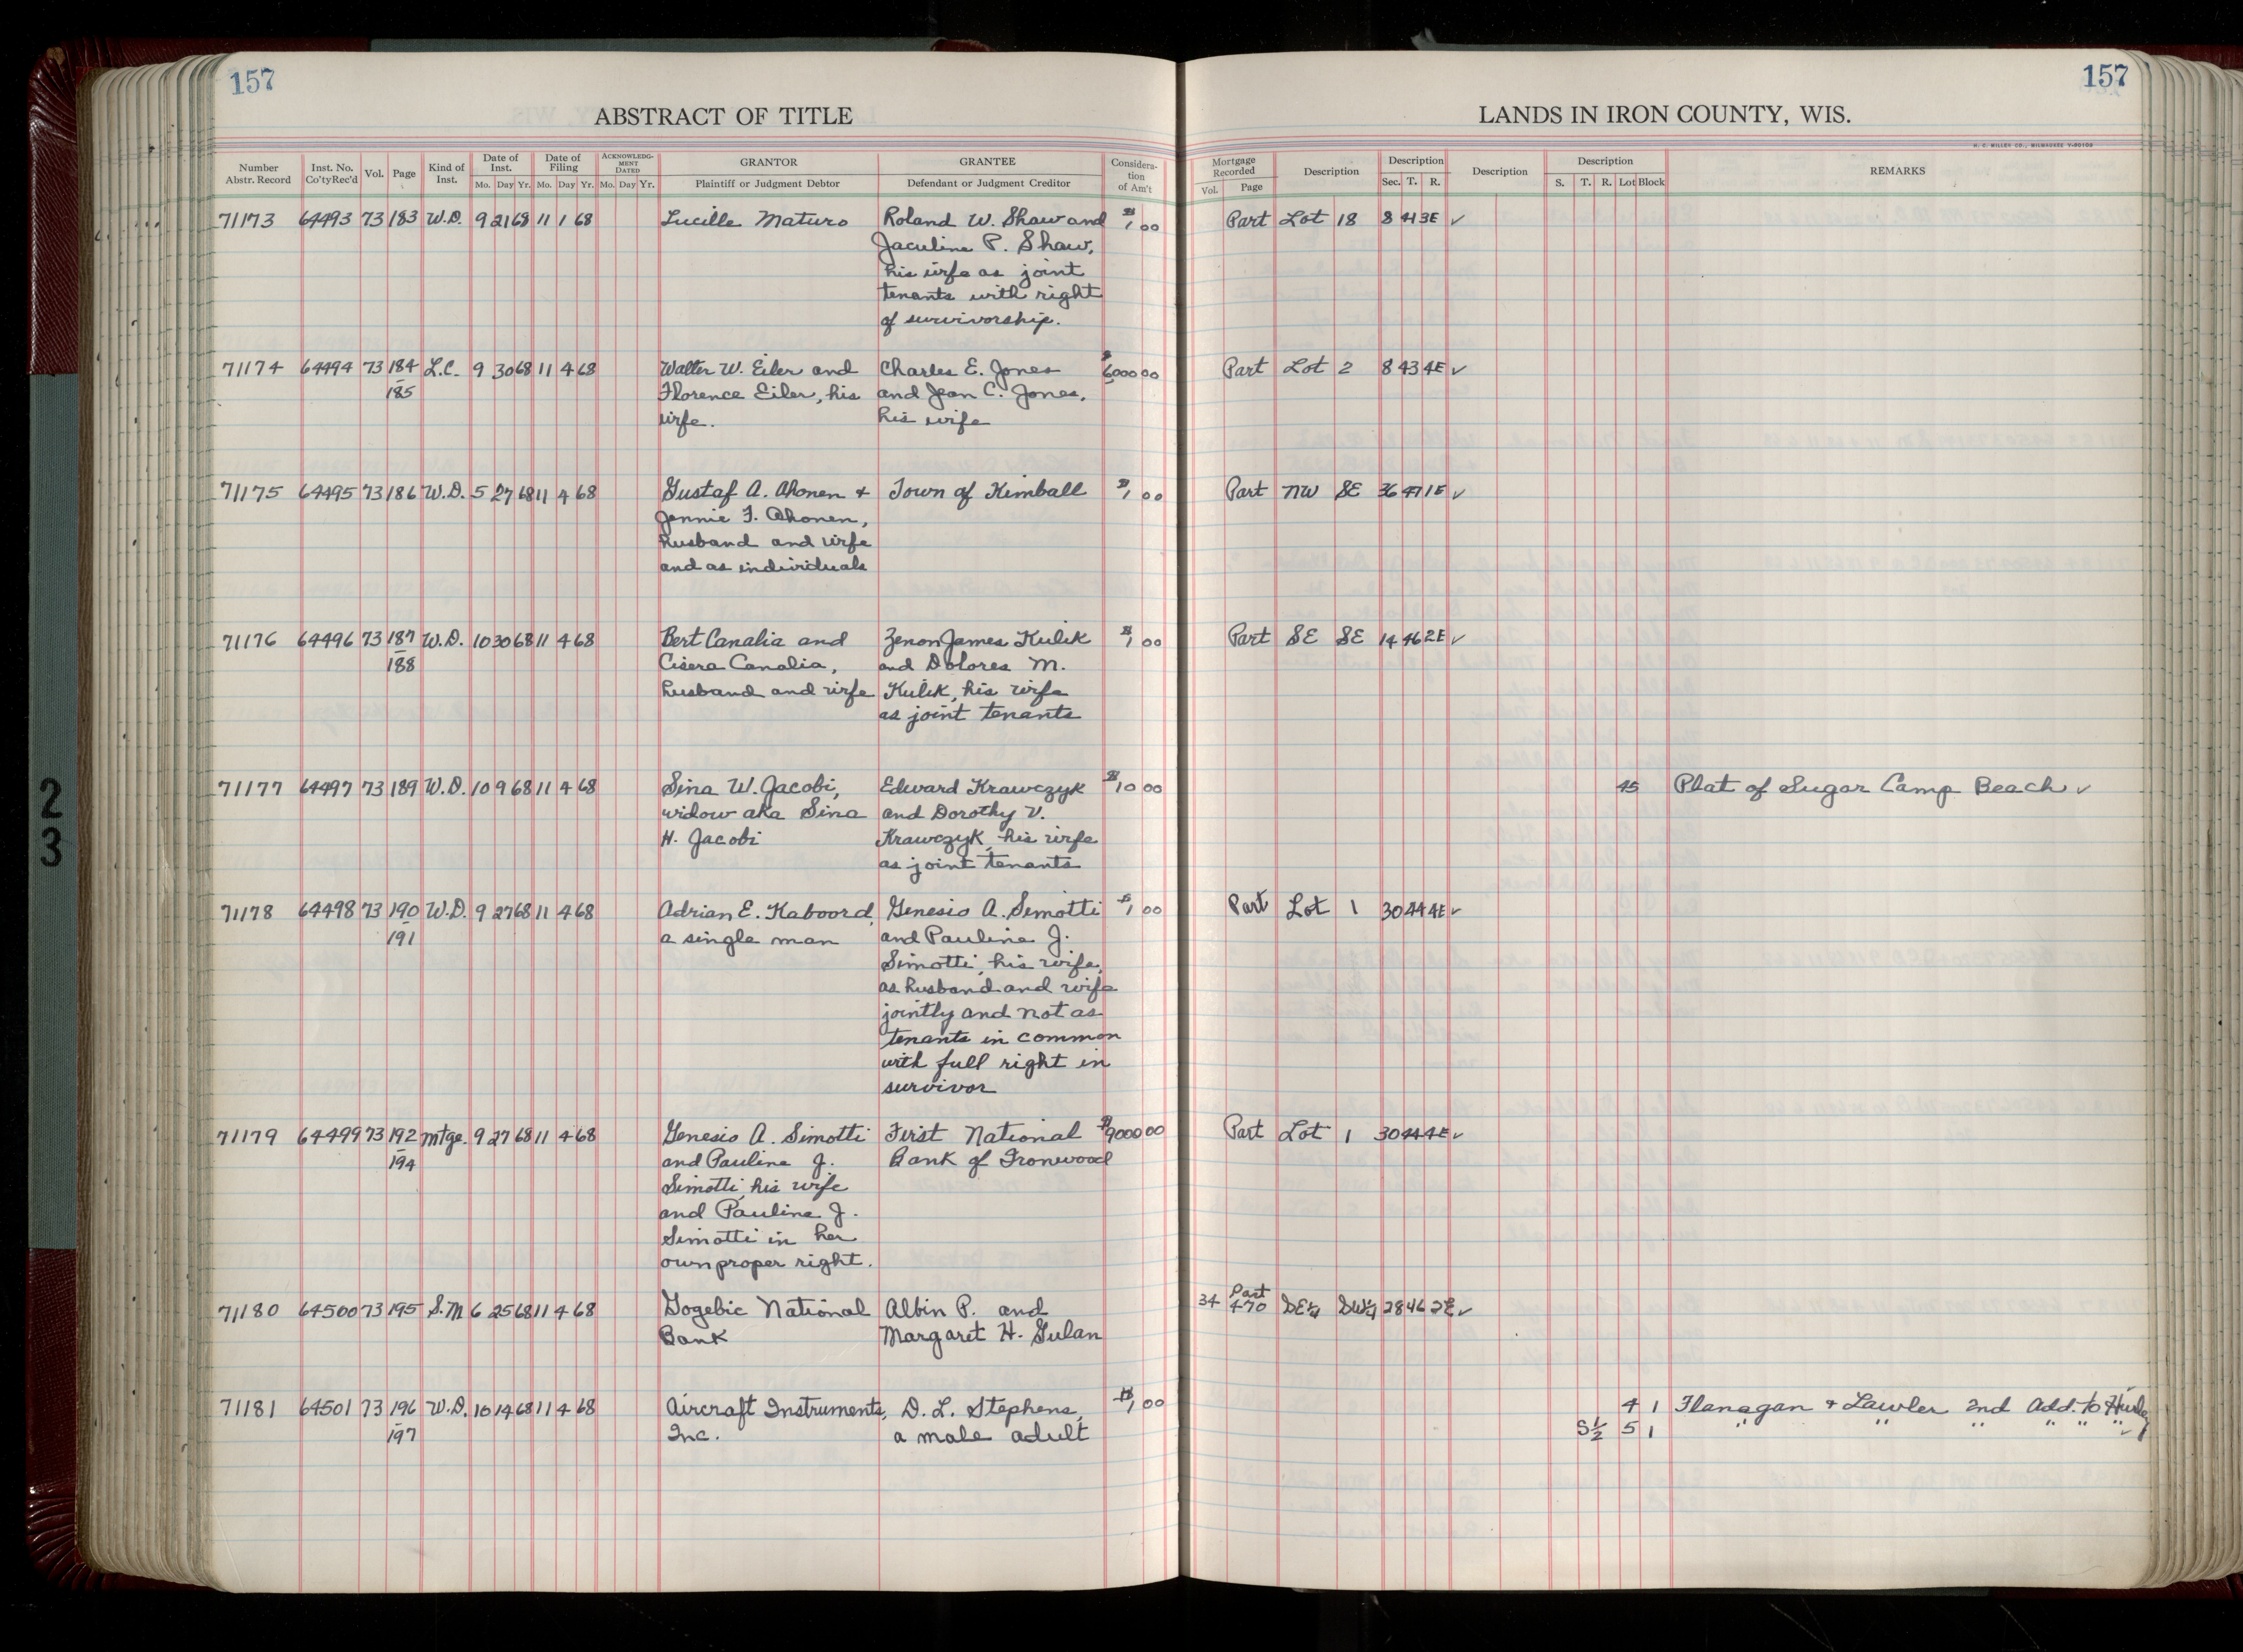 157
157
ABSTRACT OF TITLE
LANDS IN IRON COUNTY, WIS.
H. C. MILLER CO., MILWAUKEE
Number Abstr. Record | Inst. No. Co'ty Rec'd | Vol. | Page | Kind of Inst. | Date of Inst. Mo. Day Yr. | Date of Filing Mo. Day Yr. | ACKNOWLEDGMENT DATED Mo. Day Yr. | GRANTOR Plaintiff or Judgment Debtor | GRANTEE Defendant or Judgment Creditor | Consideration of Am't | Mortgage Recorded Vol. Page | Description | Description Sec. T. R. | Description | Description S. T. R. Lot Block | REMARKS
71173 64493 73 183 W.D. 9 21 68 11 1 68 Lucille Maturo Roland W. Shaw and $1 00 Part Lot 18 8 41 3E ✓
Jaculine P. Shaw,
his wife as joint
tenants with right
of survivorship.
71174 64494 73 184 L.C. 9 30 68 11 4 68 Walter W. Eiler and Charles E. Jones $6000 00 Part Lot 2 8 43 4E ✓
- 185 Florence Eiler, his and Jean C. Jones,
wife. his wife
71175 64495 73 186 W.D. 5 27 68 11 4 68 Gustaf A. Ahonen + Town of Kimball $1 00 Part NW SE 36 47 1E ✓
Jennie F. Ahonen,
husband and wife
and as individuals
71176 64496 73 187 W.D. 10 30 68 11 4 68 Bert Canalia and Zenon James Kulik $1 00 Part SE SE 14 46 2E ✓
- 188 Cisera Canalia, and Dolores M.
husband and wife Kulik, his wife
as joint tenants
71177 64497 73 189 W.D. 10 9 68 11 4 68 Sina W. Jacobi, Edward Krawczyk $10 00 45 Plat of Sugar Camp Beach ✓
widow aka Sina and Dorothy V.
H. Jacobi Krawczyk, his wife
as joint tenants
71178 64498 73 190 W.D. 9 27 68 11 4 68 Adrian E. Kaboord, Genesio A. Simotti $1 00 Part Lot 1 30 44 4E ✓
- 191 a single man and Pauline J.
Simotti, his wife,
as husband and wife
jointly and not as
tenants in common
with full right in
survivor
71179 64499 73 192 Mtge. 9 27 68 11 4 68 Genesio A. Simotti First National $9000 00 Part Lot 1 30 44 4E ✓
- 194 and Pauline J. Bank of Ironwood
Simotti, his wife
and Pauline J.
Simotti in her
own proper right.
71180 64500 73 195 S.M 6 25 68 11 4 68 Gogebic National Albin P. and 34 Part 470 SE¼ SW¼ 28 46 2E ✓
Bank Margaret H. Gulan
71181 64501 73 196 W.D. 10 14 68 11 4 68 Aircraft Instruments, D. L. Stephens, $1 00 4 1 Flanagan + Lawler 2nd Add. to Hurley
- 197 Inc. a male adult S½ 5 1 " " " " " " ✓
2
3